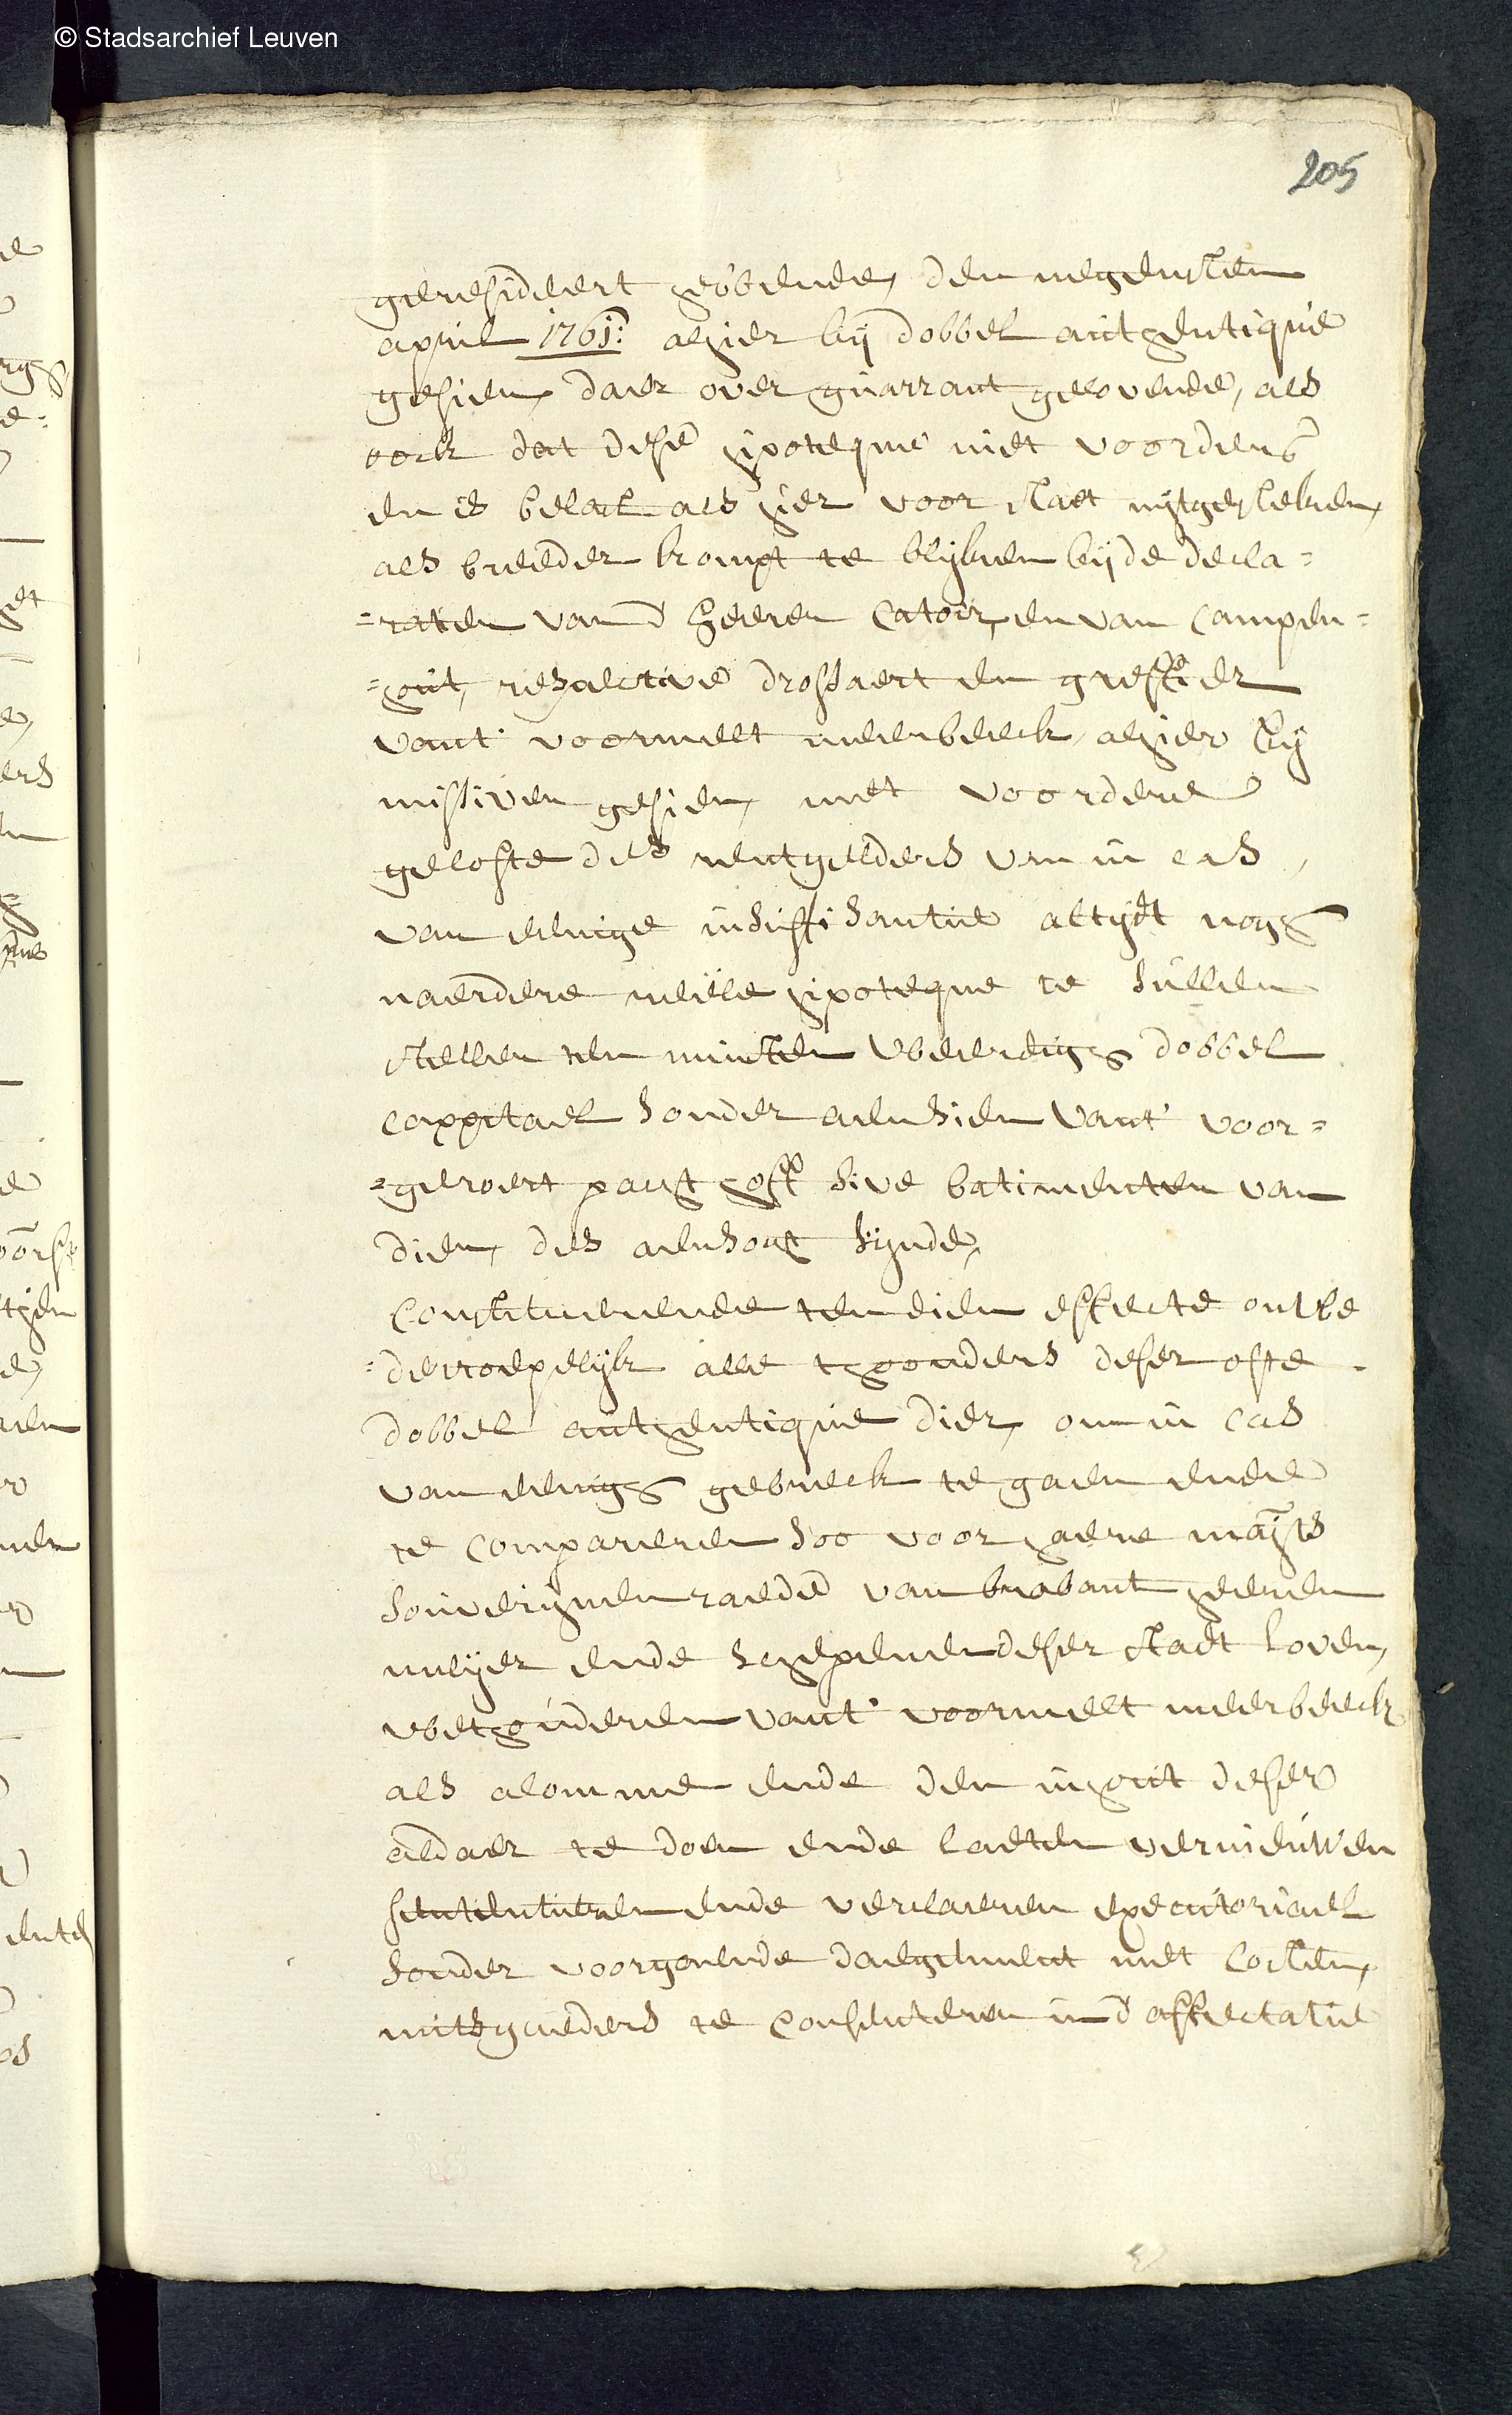 © Stadsarchief Leuven
205
geresideert hebbende, den negensten
april 1761: alhier bij dobbel authentique
gesien, daer over guarrant gelovende, als
oock dat dese hipoteque niet voorders
en is belast als hier voor staet uijtgesteken,
als breeder kompt te blijken bij de decla=
=raten van d' heeren Catoir, en van Campen=
=hout, respective drossaert en greffier
vant' voormelt meerbeeck, alhier bij
missiven gesien, met voordere
gelofte des rentgelders van in cas,
van eenige insuffisantie altijdt nogh
naerdere meijle hipoteque te sullen
stellen ten minsten weerdigh dobbel
cappitael sonder aensien vant' voor=
=geroert pant oft sive batimenten van
dien, des aensogt sijnde,
Constitueerende ten dien effecte onwe
=derroepelijk alle thoonders deser ofte
dobbel authentique dier, om in cas
van eenigh gebreck te gaen ende
te compareren soo voor haere ma[jts]
souverijnen raede van brabant heeren
meijer ende schepenen deser stadt loven,
wethouderen vant' voormelt meerbeeck
als alomme ende den inhout deser
aldaer te doen ende laeten vernieuwen
sententieren ende verclaeren executoriael
sonder voorgaende daegement met costen,
mitsgaeders te consenteren in d' affectatie